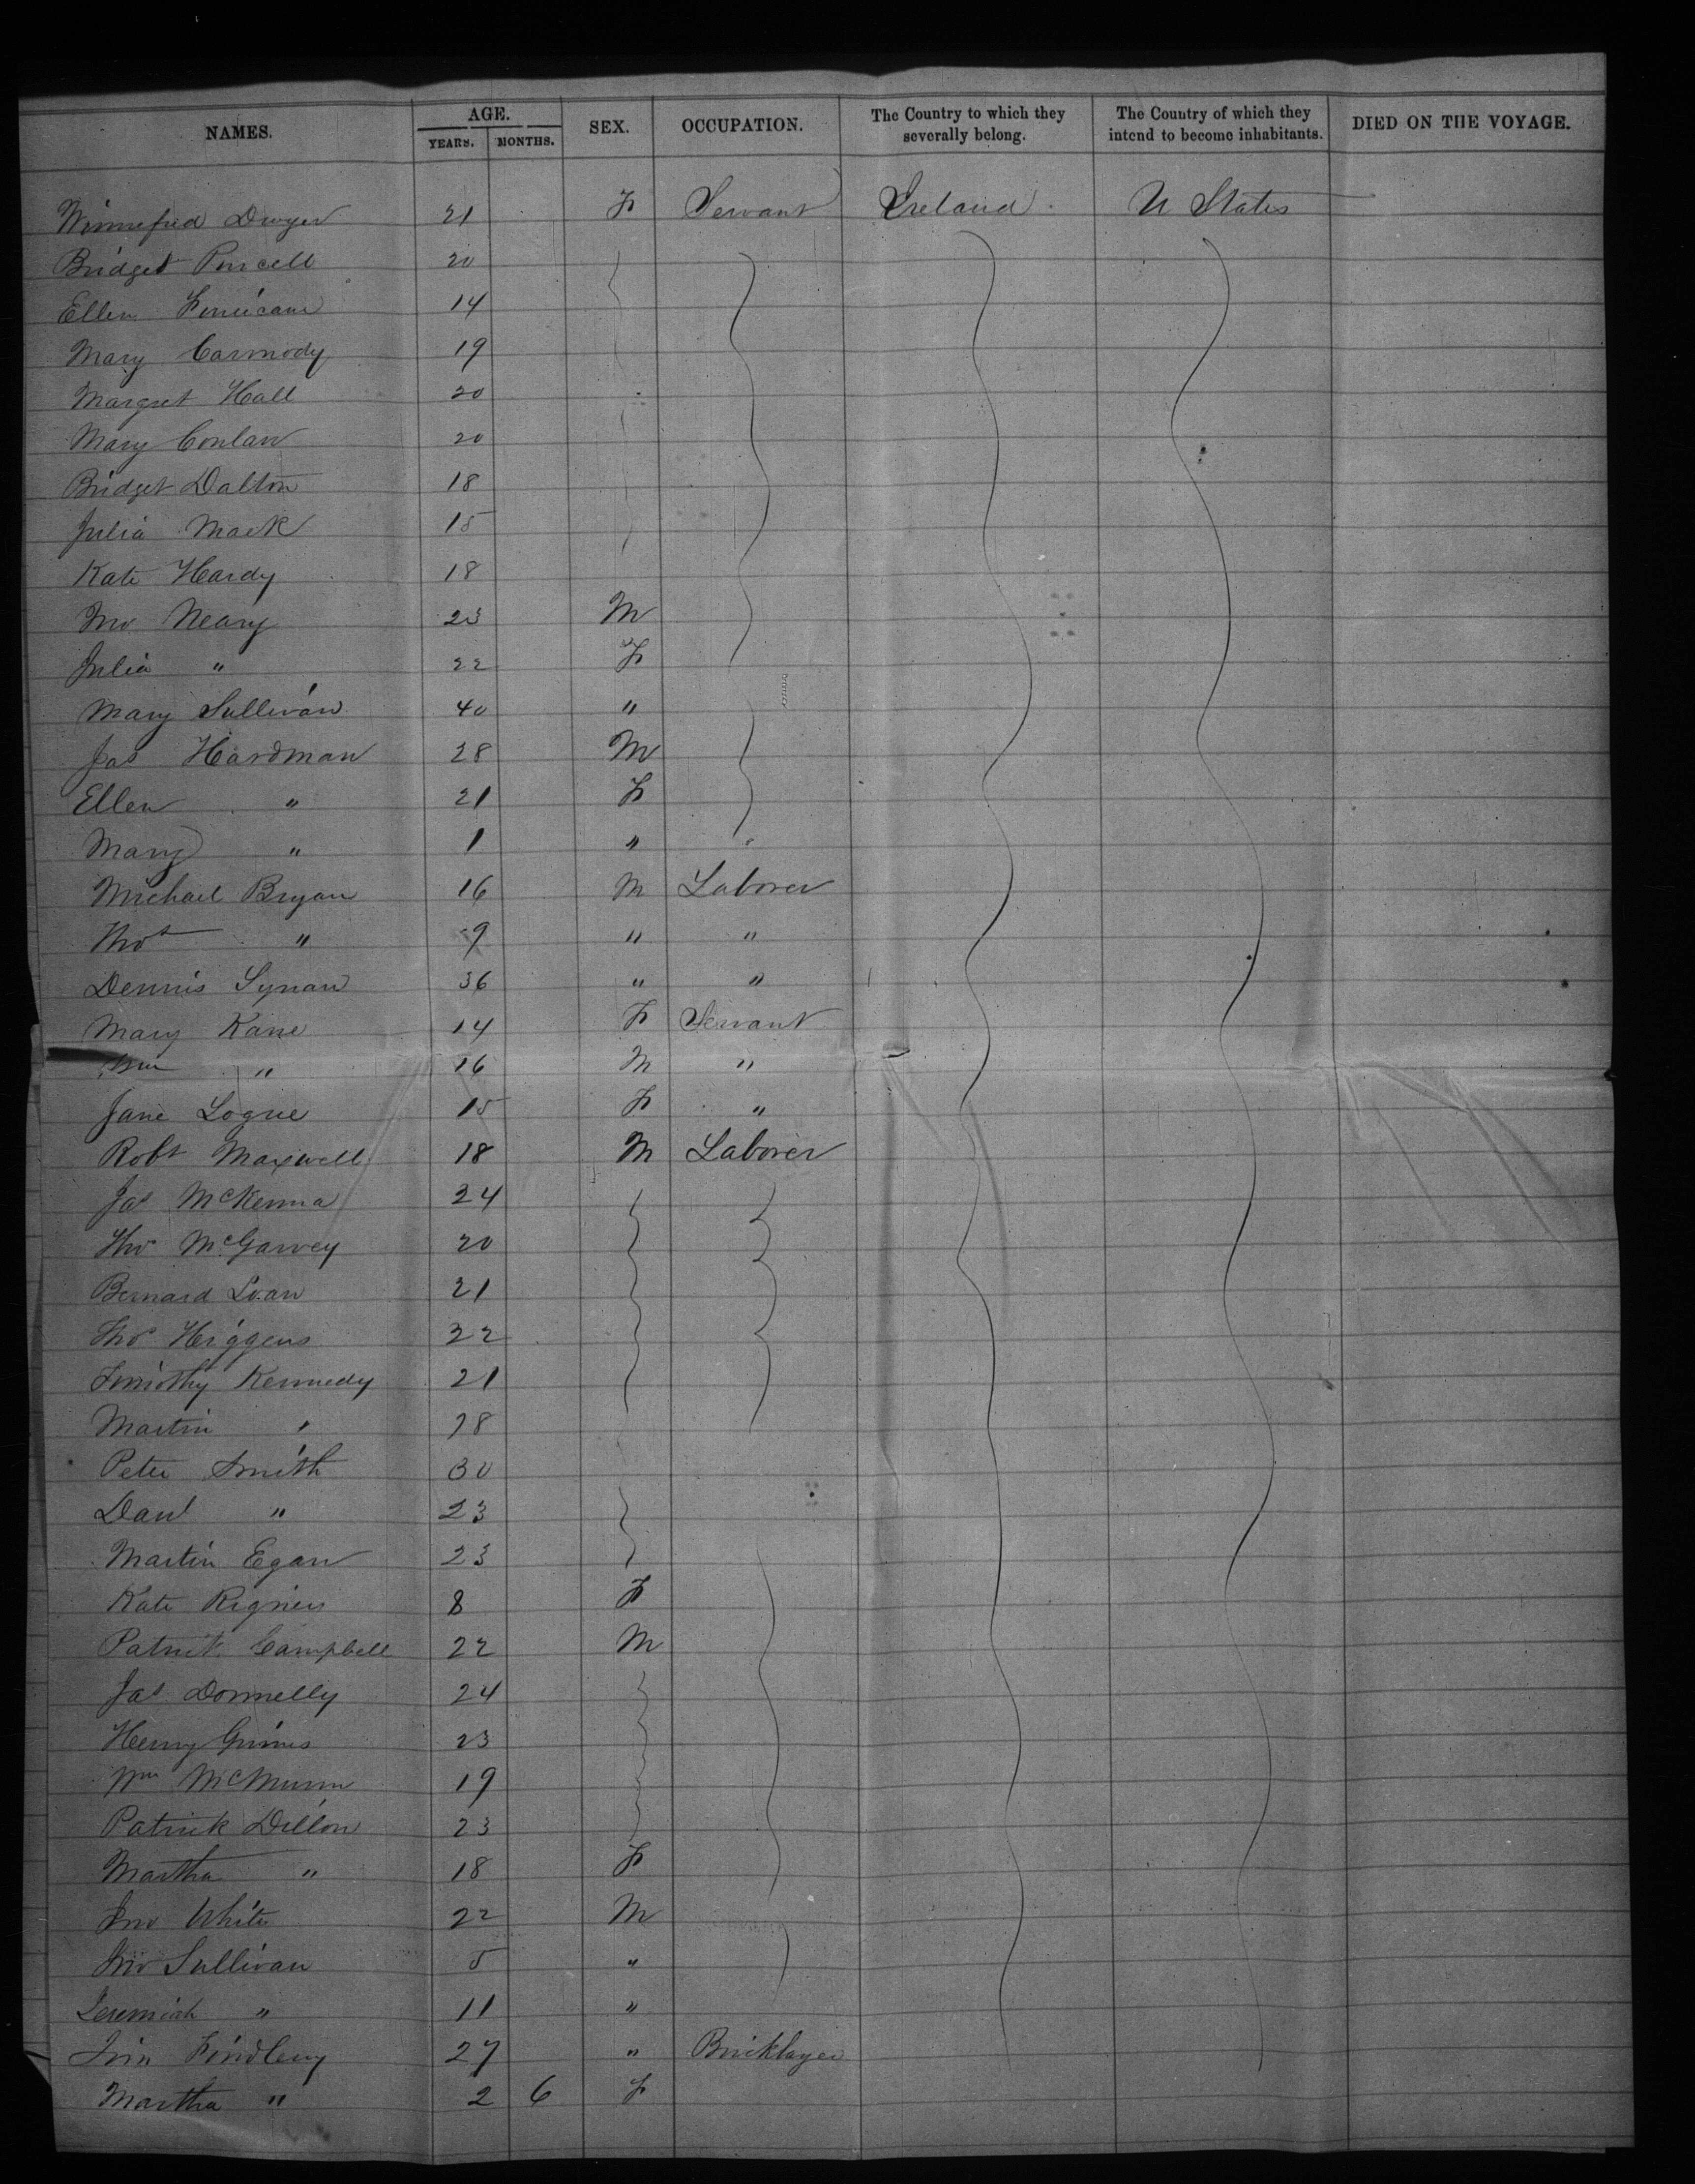 NAMES. AGE. YEARS. MONTHS. SEX. OCCUPATION. The Country to which they severally belong. The Country of which they intend to become inhabitants. DIED ON THE VOYAGE.
Winnefred Dwyer 21 F Servant Ireland U States
Bridget Purcell 20
Ellen 14
Mary Carmody 19
Margret Hall 20
Mary Conlan 20
Bridget Dalton 18
Julia Mack 15
Kate Hardy 18
Jno Neary 23 M
Julia " 22 F
Mary Sullivan 40 "
Jas Hardman 28 M
Ellen " 21 F
Mary " 1 "
Michael Bryan 16 M Laborer
Thos " 9 " "
Dennis Synan 36 " "
Mary Kane 14 F Servant
Wm " 16 M "
Jane Logue 15 F "
Robt Maxwell 18 M Laborer
Jas McKenna 24
Thos McGarvey 20
Bernard Loan 21
Thos Higgens 22
Timothy Kennedy 21
Martin " 18
Peter Smith 30
Danl " 23
Martin Egan 23
Kate 8 F
Patrick Campbell 22 M
Jas Donnelly 24
Henry Grimes 23
Wm McMunn 19
Patrick Dillon 23
Martha " 18 F
Jno White 22 M
Jno Sullivan 5 "
Jeremiah " 11 "
Findleny 27 " Bricklayer
Martha " 2 6 F